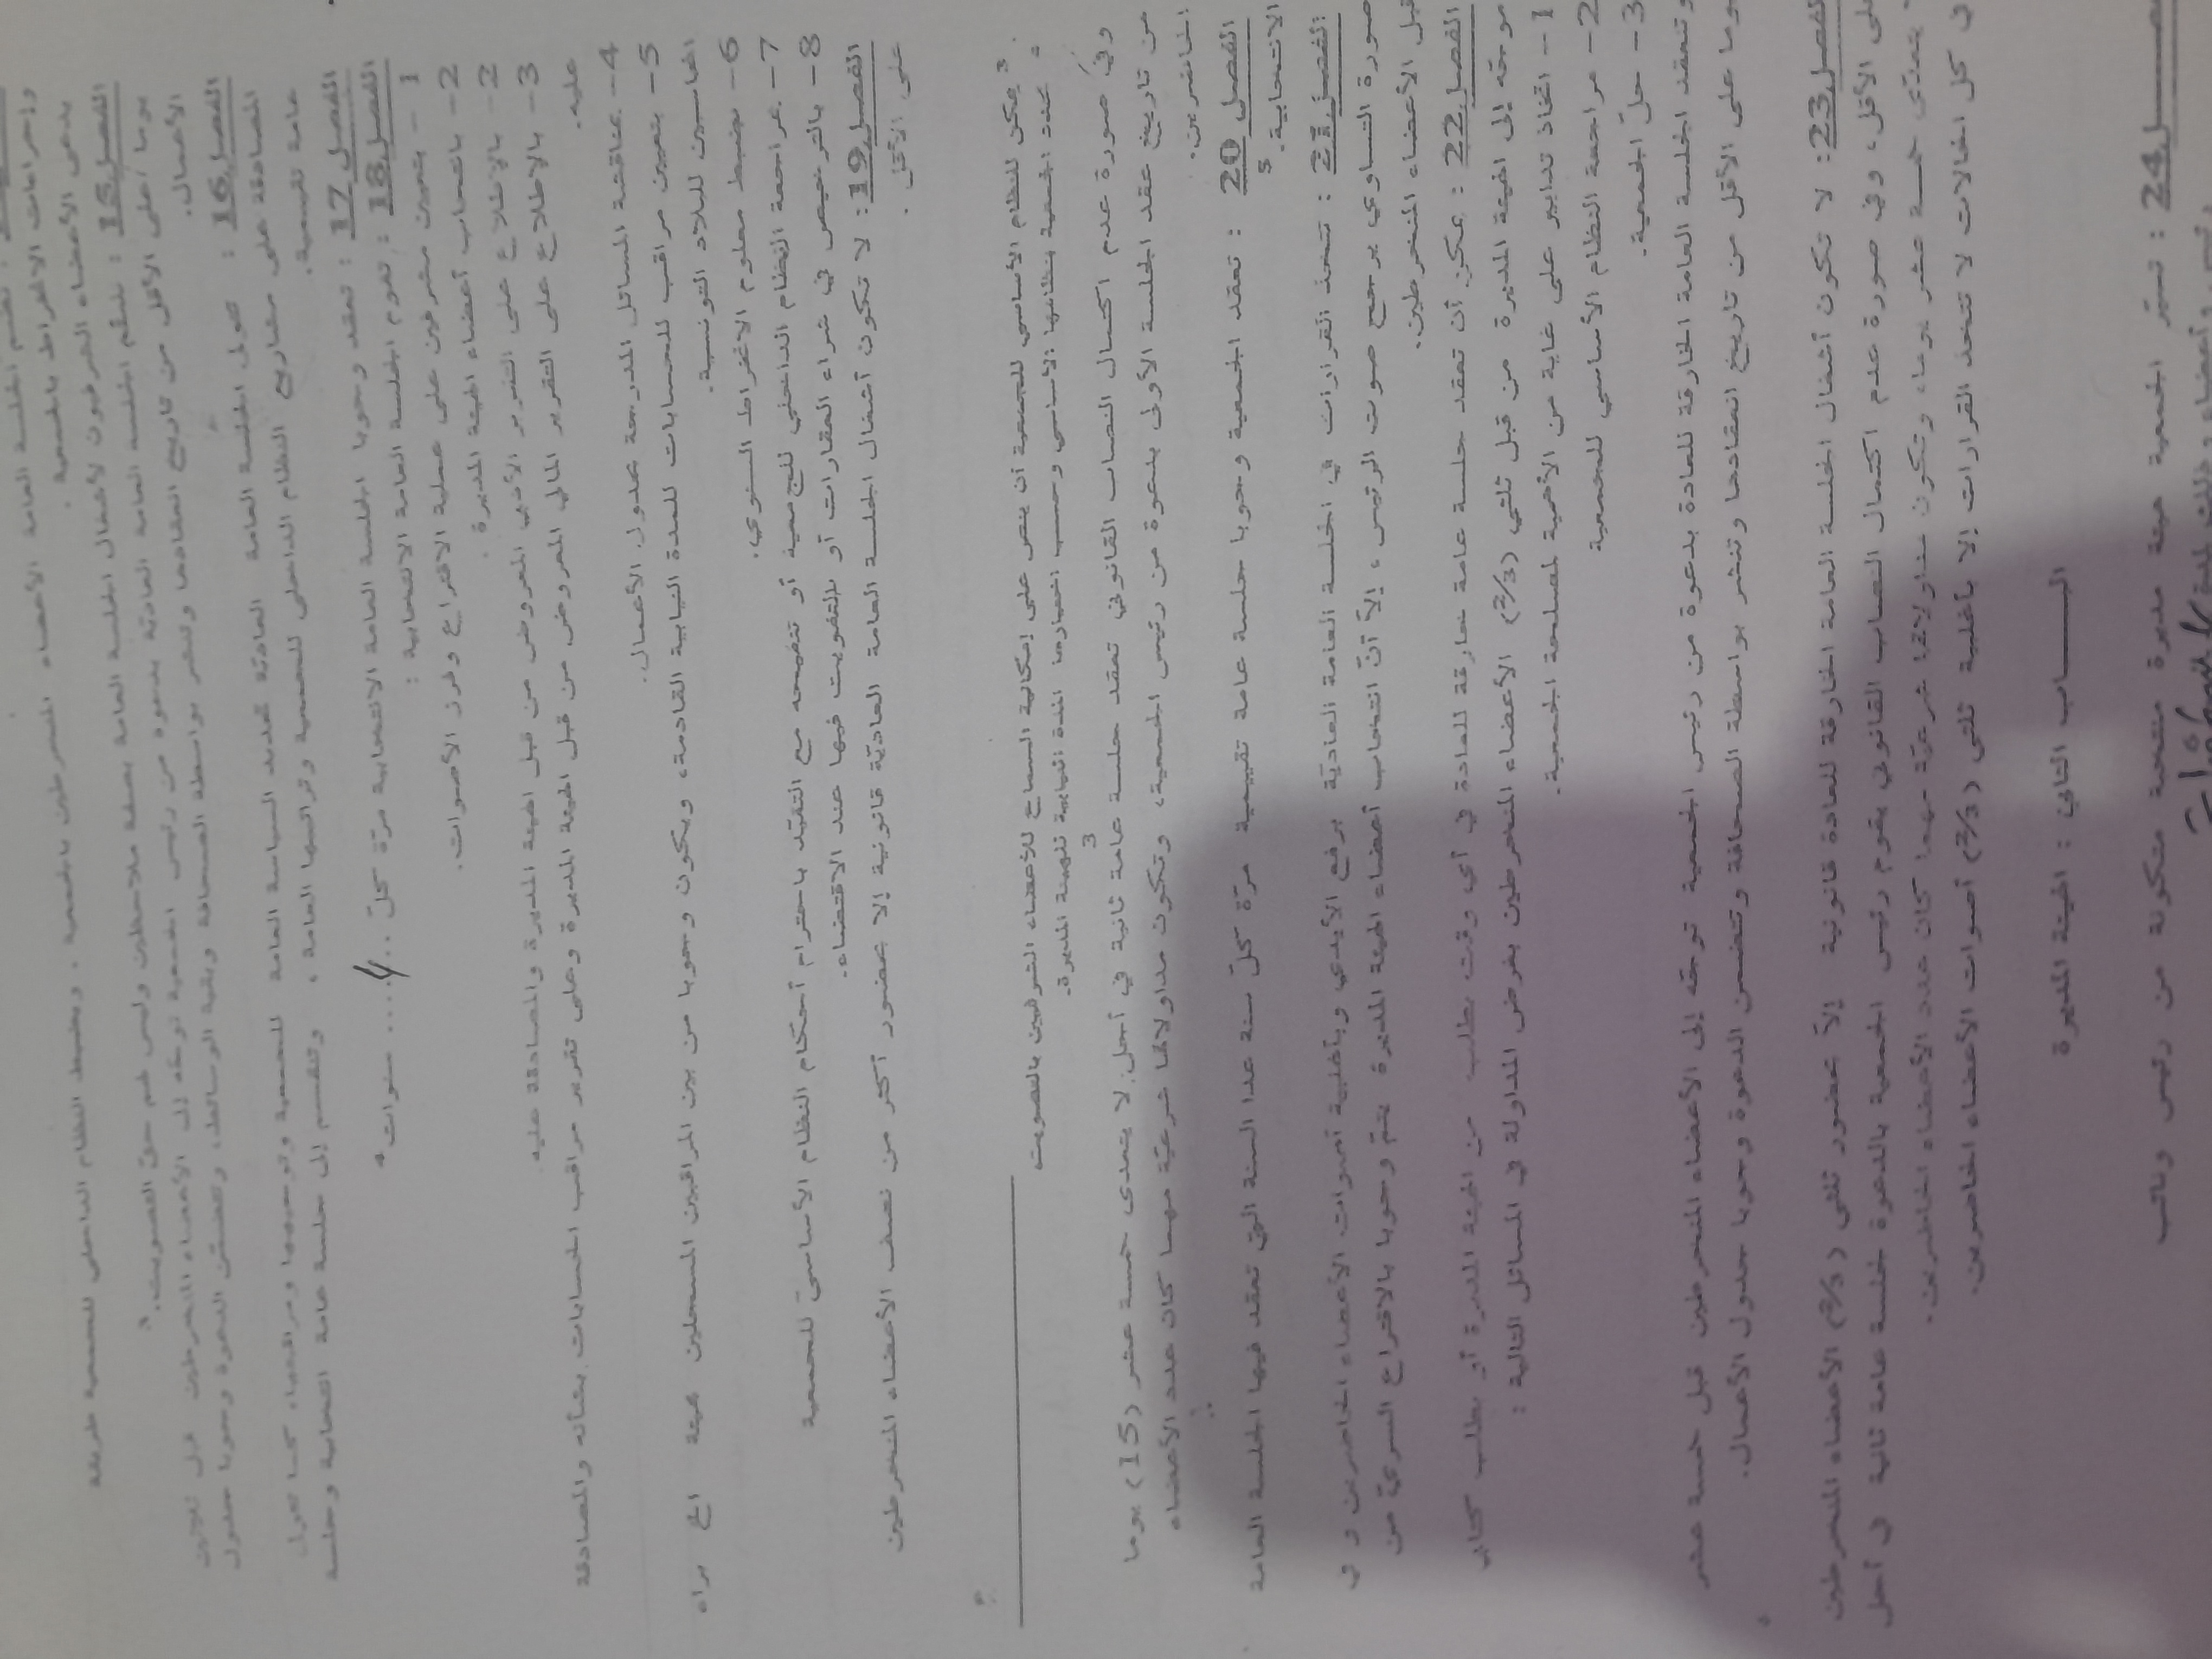 وإجراءات الانخراط بالجمعية.
يدعى الأعضاء الشرفيون لأشغال الجلسة العامة بصفة ملاحظين وليس لهم حق التصويت.³
الفصل 15 : تلتئم الجلسة العامة العاديّة بدعوة من رئيس الجمعية توجّه إلى الأعضاء المنخرطين قبل ثلاثين
يوما على الأقل من تاريخ انعقادها وتنشر بواسطة الصحافة وبقية الوسائط، وتتضمّن الدعوة وجوبا جدول
الأعمال.
الفصل 16 : تتولى الجلسة العامة العاديّة تحديد السياسة العامة للجمعية وتوجيهها ومراقبتها، كما تتولى
المصادقة على مشاريع النظام الداخلي للجمعية وتراتيبها العامة، وتنقسم إلى جلسة عامة انتخابية وجلسة
عامة تقييمية.
الفصل 17 : تعقد وجوبا الجلسة العامة الانتخابية مرّة كلّ ..4.... سنوات⁴
الفصل 18 : تقوم الجلسة العامة الانتخابية :
1 – بتعيين مشرفين على عملية الاقتراع وفرز الأصوات.
2- بانتخاب أعضاء الهيئة المديرة.
2- بالاطلاع على التقرير الأدبي المعروض من قبل الهيئة المديرة والمصادقة عليه.
3- بالاطلاع على التقرير المالي المعروض من قبل الهيئة المديرة وعلى تقرير مراقب الحسابات بشأنه والمصادقة
عليه.
4- بمناقشة المسائل المدرجة بجدول الأعمال.
5- بتعيين مراقب للحسابات للمدة النيابية القادمة، ويكون وجوبا من بين المراقبين المسجلين بهيئة الخبراء
المحاسبين للبلاد التونسية.
6- بضبط معلوم الانخراط السنوي.
7- بمراجعة النظام الداخلي للجمعية أو تنقيحه مع التقيّد باحترام أحكام النظام الأساسيّ للجمعية
8- بالترخيص في شراء العقارات أو بالتفويت فيها عند الاقتضاء.
الفصل 19 : لا تكون أشغال الجلسة العامة العاديّة قانونية إلا بحضور أكثر من نصف الأعضاء المنخرطين
على الأقل.
³ يمكن للنظام الأساسي للجمعية أن ينص على إمكانية السماح للأعضاء الشرفيين بالتصويت
⁴ تحدد الجمعية بنظامها الأساسي وحسب اختيارها المدة النيابية للهيئة المديرة.
3
وفي صورة عدم اكتمال النصاب القانوني تعقد جلسة عامة ثانية في أجل لا يتعدى خمسة عشر (15) يوما
من تاريخ عقد الجلسة الأولى بدعوة من رئيس الجمعية، وتكون مداولاتها شرعيّة مهما كان عدد الأعضاء
الحاضرين.
الفصل 20 : تعقد الجمعية وجوبا جلسة عامة تقييمية مرّة كلّ سنة عدا السنة التي تعقد فيها الجلسة العامة
الانتخابية.⁵
الفصل 21 : تتخذ القرارات في الجلسة العامة العاديّة برفع الأيدي وبأغلبية أصوات الأعضاء الحاضرين و في
صورة التساوي يرجح صوت الرئيس، إلاّ أنّ انتخاب أعضاء الهيئة المديرة يتمّ وجوبا بالاقتراع السريّ من
قبل الأعضاء المنخرطين.
الفصل 22 : يمكن أن تعقد جلسة عامة خارقة للعادة في أي وقت بطلب من الهيئة المديرة أو بطلب كتابي
موجّه إلى الهيئة المديرة من قبل ثلثي (2/3) الأعضاء المنخرطين بغرض المداولة في المسائل التالية :
1 – اتخاذ تدابير على غاية من الأهمية لمصلحة الجمعية.
2- مراجعة النظام الأساسي للجمعية
3- حلّ الجمعية.
وتنعقد الجلسة العامة الخارقة للعادة بدعوة من رئيس الجمعية توجّه إلى الأعضاء المنخرطين قبل خمسة عشر
يوما على الأقل من تاريخ انعقادها وتنشر بواسطة الصحافة وتتضمن الدعوة وجوبا جدول الأعمال.
الفصل 23 : لا تكون أشغال الجلسة العامة الخارقة للعادة قانونية إلاّ بحضور ثلثي (2/3) الأعضاء المنخرطين
على الأقل، وفي صورة عدم اكتمال النصاب القانوني يقوم رئيس الجمعية بالدعوة لجلسة عامة ثانية في أجل
يتعدّى خمسة عشر يوما، وتكون مداولاتها شرعيّة مهما كان عدد الأعضاء الحاضرين.
في كل الحالات لا تتخذ القرارات إلا بأغلبية ثلثي (2/3) أصوات الأعضاء الحاضرين.
البــــاب الثاني : الهيئة المديرة
الفصــل 24 : تسيّر الجمعية هيئة مديرة منتخبة متكونة من رئيس ونائب